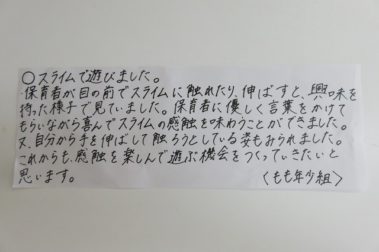 ○スライムで遊びました。
・保育者が目の前でスライムに触れたり、伸ばすと、興味を
持った様子で見ていました。保育者に優しく言葉をかけて
もらいながら喜んでスライムの感触を味わうことができました。
又、自分から手を伸ばして触ろうとしている姿もみられました。
これからも、感触を楽しんで遊ぶ機会をつくっていきたいと
思います。
〈もも年少組〉